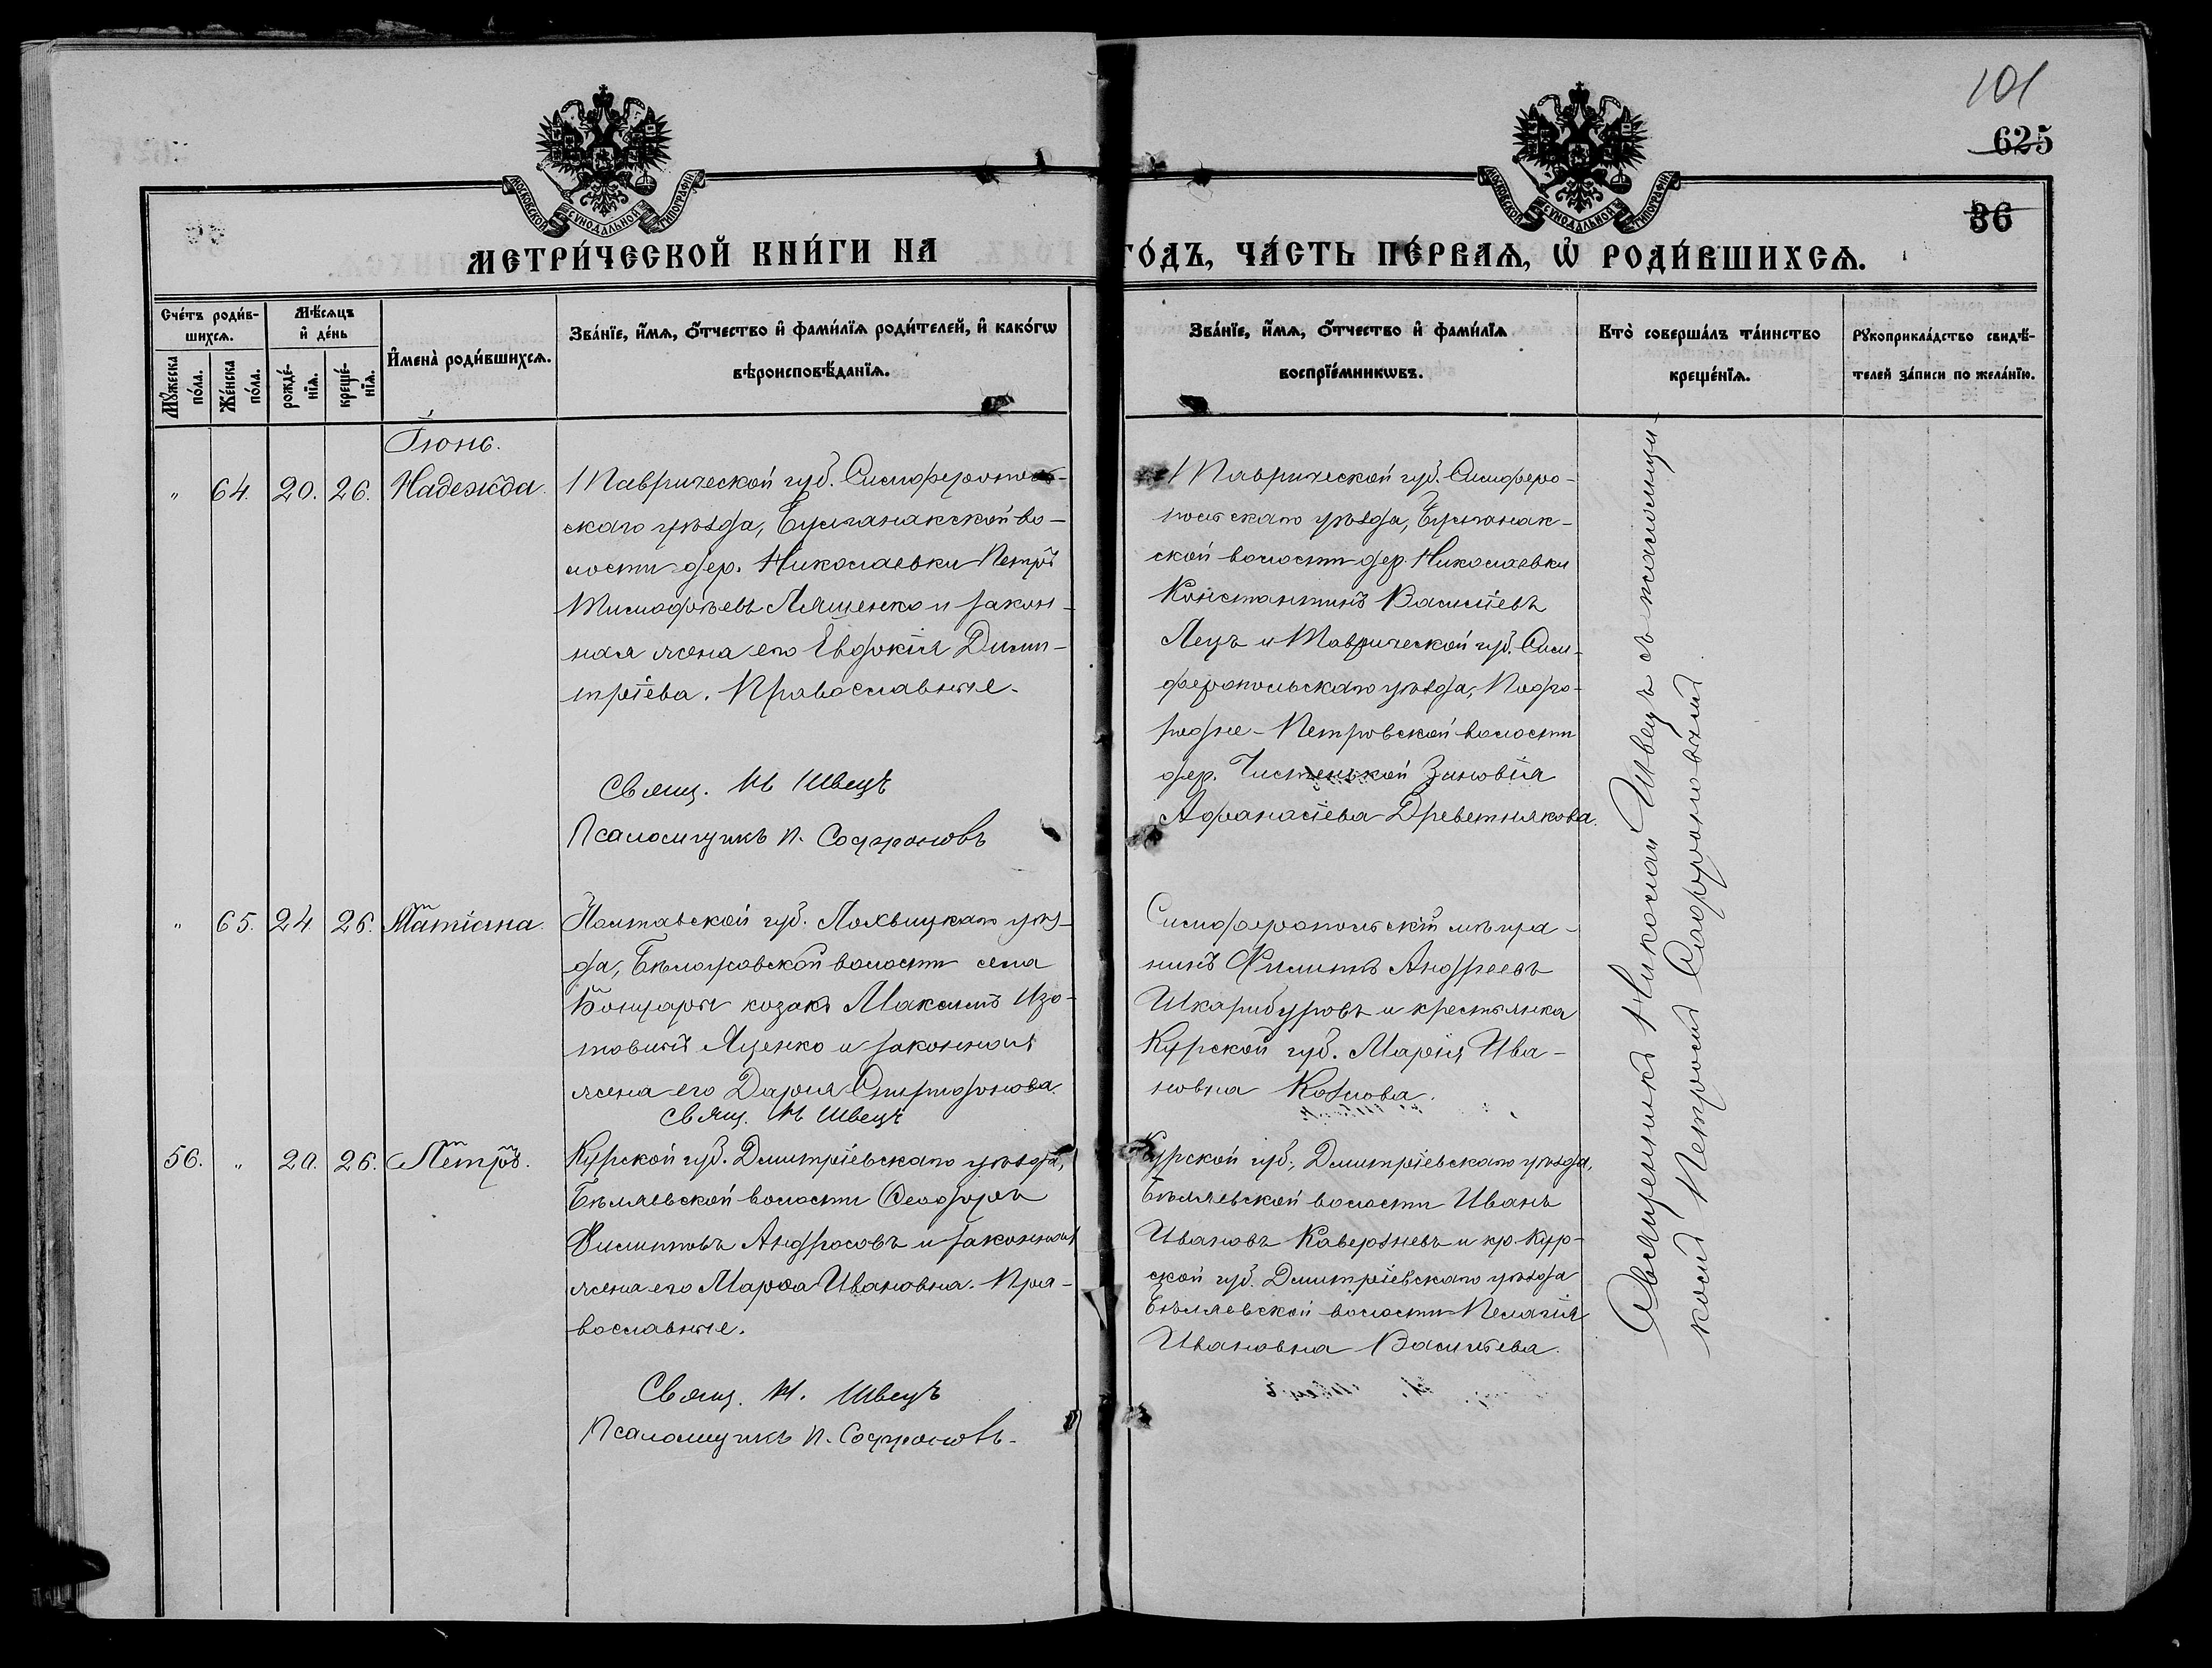 101
625
36
МОСКОВСКОЙ СѴНОДАЛЬНОЙ ТИПОГРАФІИ
МОСКОВСКОЙ СѴНОДАЛЬНОЙ ТИПОГРАФІИ
МЕТРИ́ЧЕСКОЙ КНИ́ГИ НА
ГО́ДЪ, ЧА́СТЬ ПЕ́РВАѦ, Ѡ РОДИ́ВШИХСѦ.
Сче́тъ роди́в-
шихсѧ.
Мꙋжеска по́ла.
Же́нска по́ла.
Мѣ́сѧцъ
и҆ де́нь
рожде́-нїѧ.
креще́-нїѧ.
И҆мена̀ роди́вшихсѧ.
Зва́нїе, и҆́мѧ, ѻ҆́тчество и҆ фами́лїѧ роди́телей, и҆ како́гѡ
вѣроисповѣ́данїѧ.
Зва́нїе, и҆́мѧ, ѻ҆́тчество и҆ фами́лїѧ
воспрїе́мникѡвъ.
Кто̀ соверша́лъ та́инство
креще́нїѧ.
Рꙋкоприкла́дство свидѣ́-
телей за́писи по жела́нїю.
Іюнь.
" 64. 20. 26. Надежда.
Таврической губ. Симферополь-
скаго уѣзда, Булганакской во-
лости дер. Николаевки Петръ
Тимофѣевъ Лященко и закон-
ная жена его Евдокія Дими-
тріева. Православные.
Свящ. Н Швецъ
Псаломщикъ П. Софроновъ
Таврической губ. Симферо-
польскаго уѣзда, Булганак-
ской волости дер. Николаевки
Константинъ Василіевъ
Лецъ и Таврической губ. Сим-
феропольскаго уѣзда, Подго-
родне-Петровской волости
дер. Чистенькой Зиновія
Афанасіева Древетнякова.
" 65. 24. 26. Татіана.
Полтавской губ. Лохвицкаго уѣз-
да, Бѣлогровской волости села
Бондари козакъ Максимъ Изо-
товичъ Яценко и законная
жена его Дарія Спиридонова.
Свящ. Н Швецъ
Симферопольскій мѣща-
нинъ Филиппъ Андреевъ
Шкарибуровъ и крестьянка
Курской губ. Марія Ива-
новна Козлова.
56. " 20. 26. Петръ.
Курской губ. Дмитріевскаго уѣзда,
Бѣляевской волости Ѳеодоръ
Филипповъ Андросовъ и законная
жена его Марѳа Ивановна. Пра-
вославные.
Свящ. Н. Швецъ
Псаломщикъ П. Софроновъ.
Курской губ., Дмитріевскаго уѣзда,
Бѣляевской волости Иванъ
Ивановъ Каверзневъ и кр. Кур-
ской губ. Дмитріевскаго уѣзда
Бѣляевской волости Пелагія
Ивановна Васильева.
Священникъ Николай Швецъ съ псаломщи-
комъ Петромъ Софроновымъ